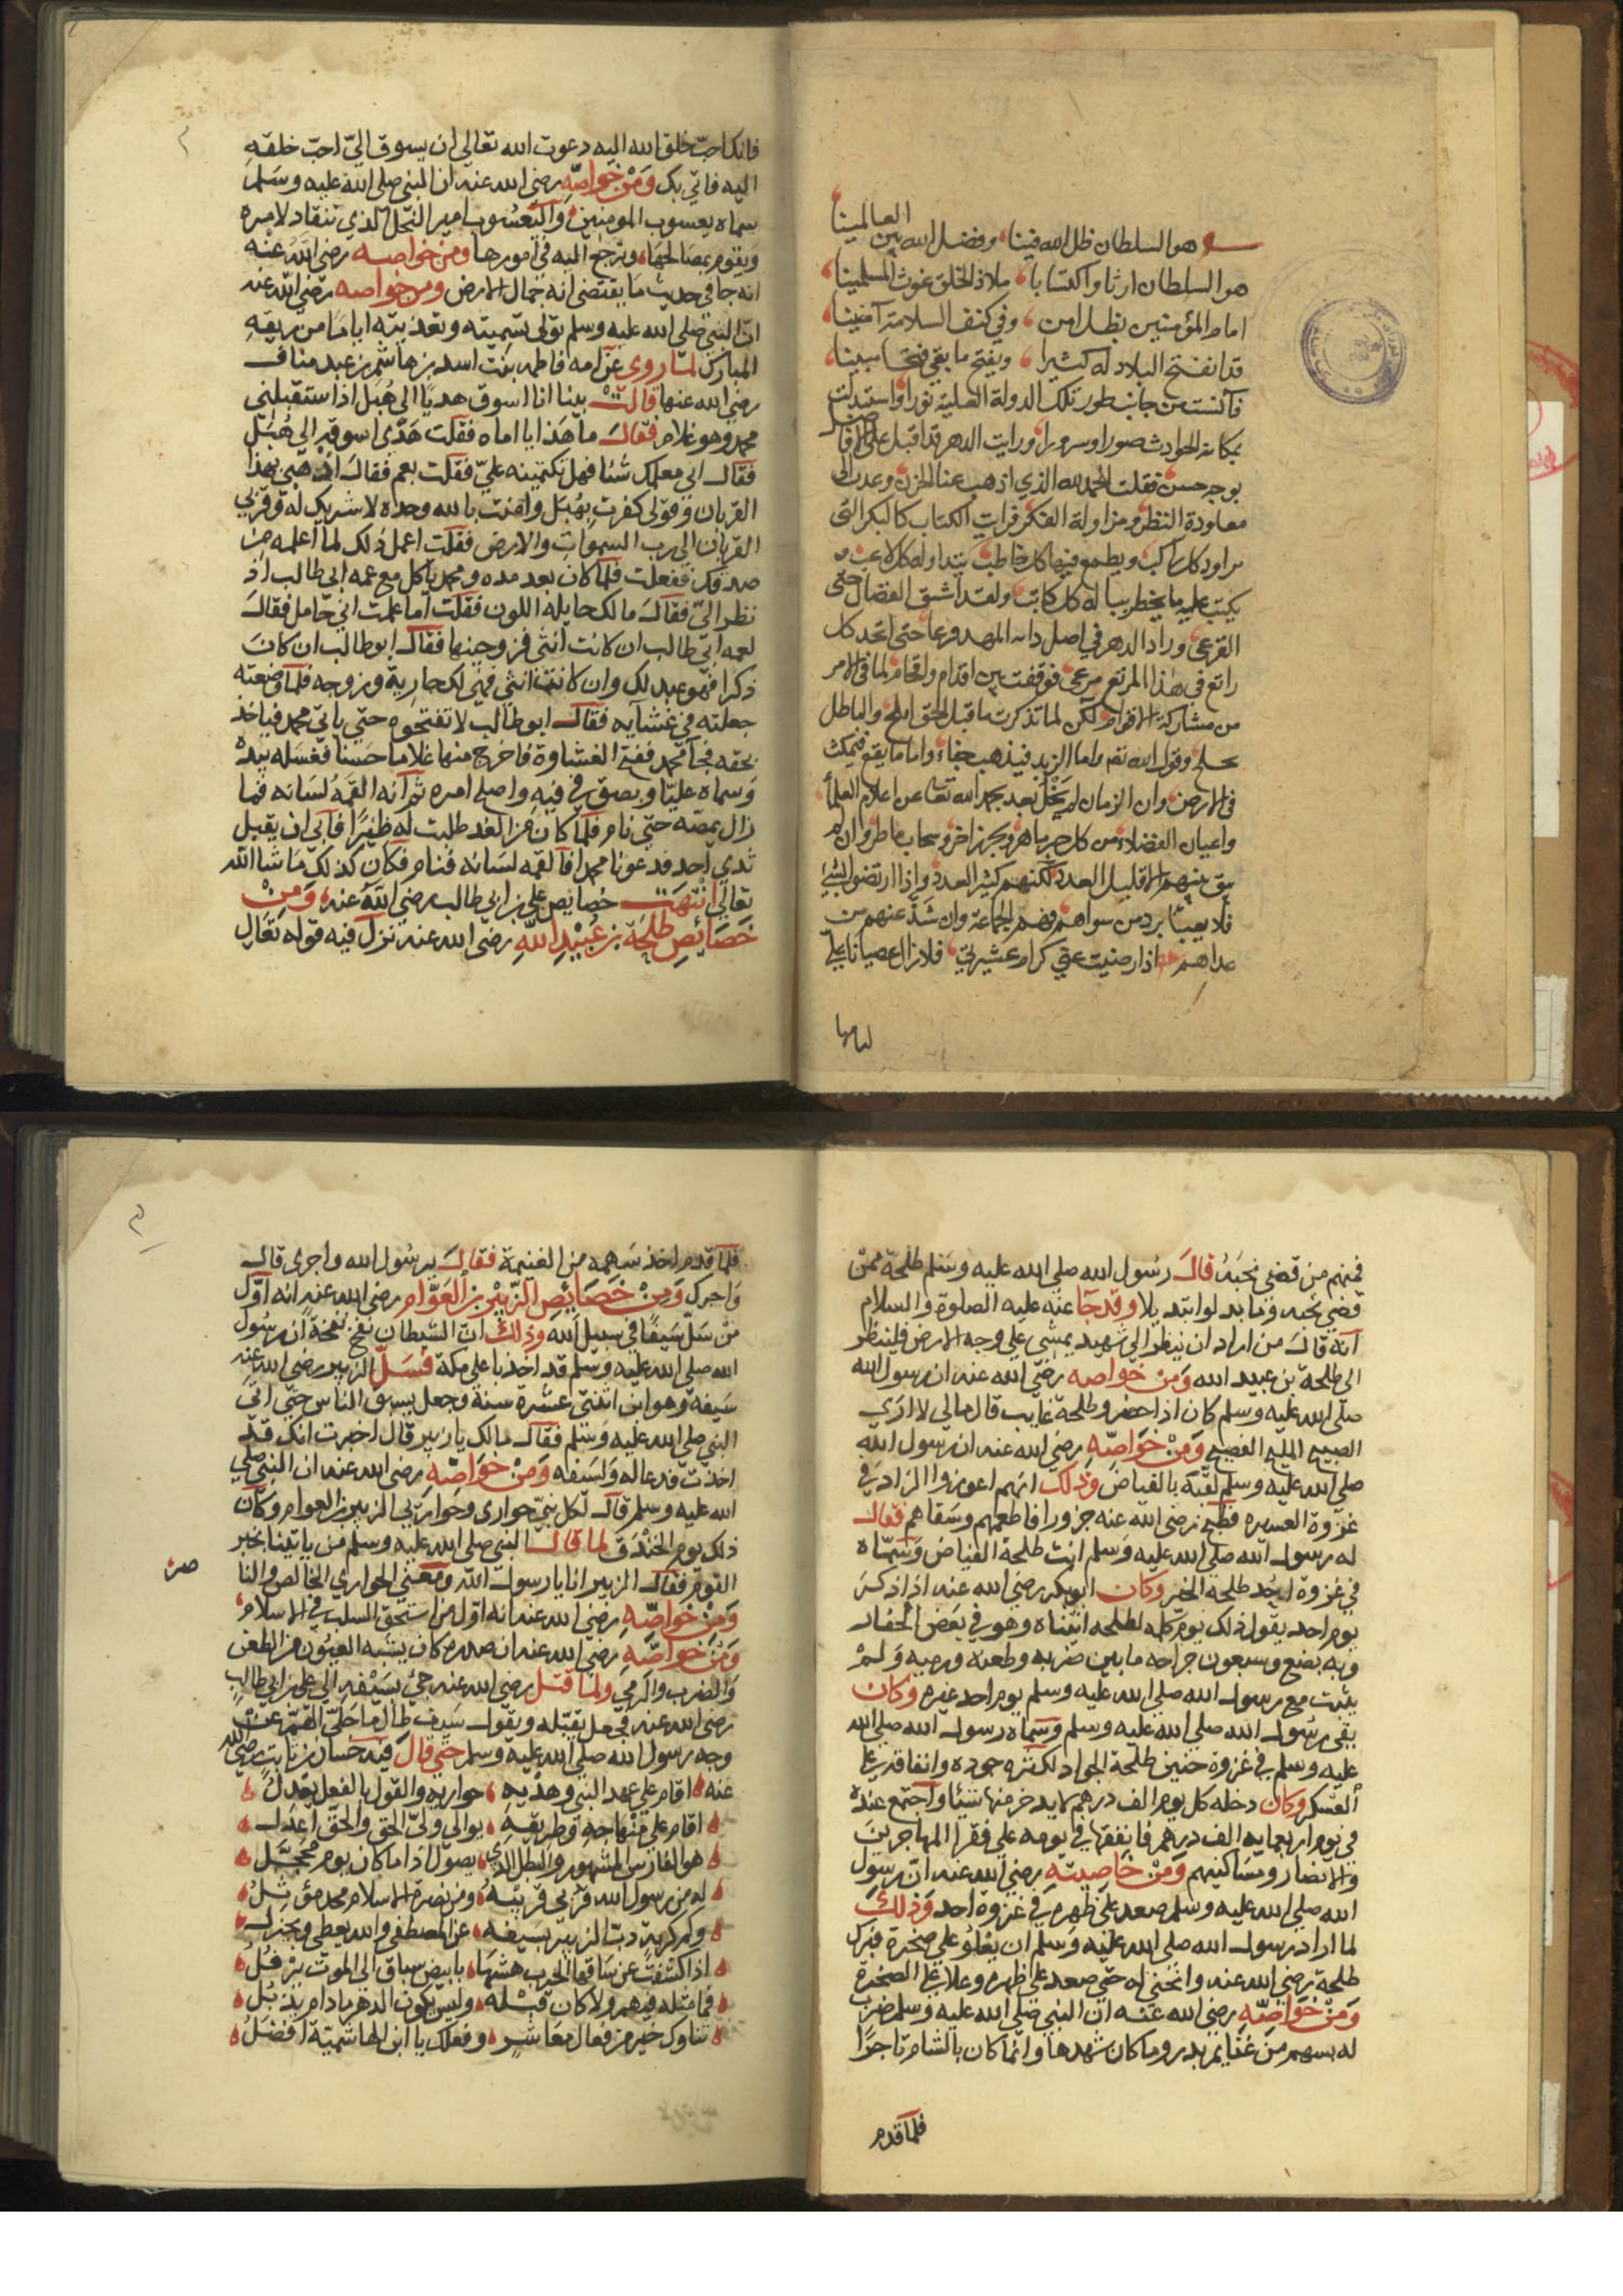 هو السلطان ظل الله فينا وفضل الله بين العالمينا
هو السلطان ارثا واكتسابا ملاذ الخلق غوث المسلمينا
امام المؤمنين بظل امن وفي كنف السلامة آمنينا
قد انفتح البلاد له كثيرا ويفتح ما بقي فتحا مبينا
فآنست من جانب طور تلك الدولة العلية نورا واستبدلت
بمكان الحوادث صورا وسرورا ورايت الدهر قد اقبل على
بوجه حسن فقلت الحمد لله الذي اذهب عنا الحزن وعدت الى
معاودة النظر ومزاولة الفكر فرايت الكتاب كالبكر التى
يراود كل راكب ويطمع فيها كل خاطب يتداوله كل لاعب
يكتب عليه ما يخطر بباله كل كاتب ولقد استنق الفصال حتى
القرعى وراد الدهر في اصل المهد وفرعا حتى اتخذ كل
راتع في هذا المرتع مرعى فوقفت بين اقدام واحجام لما في الامر
من مشاركة الاقوام لكن لما تذكرت ما قيل الحق ابلج والباطل
لجلج وقول الله تعم واما الزبد فيذهب جفاء واما ما ينفع فيمكث
في الارض وان الزمان لم يخل بعد بحمد الله تعالى عن اعلام العلماء
واعيان الفضلاء من كل حبر باهر وبحر زاخر وسحاب ماطر وان لم
يبق منهم الا قليل العدد لكنهم كثير العدد واذا ارتضوا الشئ
فلا يعبأ برد من سواهم وهم الجماعة وان شذ عنهم من
عداهم اذا رضيت عني كرام عشيرتي فلا زال غضبانا علي
لئامها
فانك احب خلق الله اليه دعوت الله تعالى ان يسوق الي احب خلقه
اليه فاتي بك ومن خواصه رضي الله عنه ان النبي صلى الله عليه وسلم
سماه يعسوب المومنين واليعسوب امير النحل الذي تنقاد لامره
ويقوم بمصالحها وترجع اليه في امورها ومن خواصه رضي الله عنه
انه جا في حديث ما يقتضي انه جمال الارض ومن خواصه رضي الله عنه
ان النبي صلى الله عليه وسلم تولى تسميته وتغذيته اياما من ريقه
المبارك لما روى عن امه فاطمه بنت اسد بن هاشم بن عبد مناف
رضي الله عنها قالت بينا انا اسوق هديا الى هبل اذ استقبلني
محمد وهو غلام فقال ما هذا يا اماه فقلت هدي اسوقه الى هبل
فقال اني معلمك شئا فهل تكتمينه علي فقلت نعم فقال اذهبي بهذا
القربان وقولي كفرت بهبل وامنت بالله وحده لا شريك له وقربي
القربان الى رب السموات والارض فقلت اعمل ذلك لما اعلمه من
صدقك ففعلت فلما كان بعد مده ومحمد ياكل مع عمه ابي طالب اذ
نظر الي فقال مالك حايله اللون فقلت اما علمت اني حامل فقال
لعمه ابي طالب ان كانت انثى فزوجنيها فقال ابو طالب ان كان
ذكرا فهو عبد لك وان كانت انثى فهي لك جارية وزوجه فلما وضعته
جعلته في غشاوه فقال ابو طالب لا تفتحوه حتى ياتي محمد فياخذ
بحقه فجا محمد ففتح الغشاوة فاخرج منها غلاما حسنا فغسله بيده
وسماه عليا وبصق في فيه واصلح امره ثم انه القمه لسانه فما
زال يمصه حتى نام فلما كان من الغد طلبت له ظئرا فابى ان يقبل
ثدي احد فدعونا محمدا فالقمه لسانه فنام فكان كذلك ما شا الله
تعالى انتهت خصايص علي بن ابي طالب رضي الله عنه ومن
خصائص طلحة بن عبيد الله رضي الله عنه نزل فيه قوله تعالى
فمنهم من قضى نحبه قال رسول الله صلى الله عليه وسلم طلحة ممن
قضى نحبه وما بدلوا تبديلا وقد جا عنه عليه الصلوة والسلام
انه قال من اراد ان ينظر الى شهيد يمشي على وجه الارض فلينظر
الى طلحة بن عبيد الله ومن خواصه رضي الله عنه ان رسول الله
صلى الله عليه وسلم كان اذا حضر وطلحة غايب قال مالي لا ارى
الصبيح المليح الفصيح ومن خواصه رضي الله عنه ان رسول الله
صلى الله عليه وسلم لقبه بالفياض وذلك انهم اعوزوا الزاد في
غزوة العسيره فطبخ رضي الله عنه جزورا فاطعمهم وسقاهم فقال
له رسول الله صلى الله عليه وسلم انت طلحة الفياض وسماه
في غزوة احد طلحة الخير وكان ابو بكر رضي الله عنه اذا ذكر
يوم احد يقول ذلك يوم كله لطلحه اتيناه وهو في بعض الحفار
وبه بضع وسبعون جراحه ما بين ضربه وطعنه ورميه ولم
يثبت مع رسول الله صلى الله عليه وسلم يوم احد غيره وكان
يقي رسول الله صلى الله عليه وسلم وسماه رسول الله صلى الله
عليه وسلم في غزوة حنين طلحة الجواد لكثرة جوده وانفاقه على
العسكر وكان دخله كل يوم الف درهم لا يدخر منها شيئا واجتمع عنده
في يوم اربعمايه الف درهم فانفقها في يومه على فقرا المهاجرين
والانصار ومساكينهم ومن خاصيته رضي الله عنه ان رسول
الله صلى الله عليه وسلم صعد على ظهره في غزوة احد وذلك
لما اراد رسول الله صلى الله عليه وسلم ان يعلو على صخرة فبرك
طلحة رضي الله عنه وانحنى له حتى صعد على ظهره وعلا على الصخرة
ومن خواصه رضي الله عنه ان النبي صلى الله عليه وسلم ضرب
له بسهم من غنايم بدر وما كان شهدها وانما كان بالشام تاجرا
فلما قدم
فلما قدم اخذ سهمه من الغنيمة فقال يرسول الله واجرى قال
واجرك ومن خصائص الزبير بن العوام رضي الله عنه انه اول
من سل سيفا في سبيل الله وذلك ان الشيطان نفخ نفخة ان رسول
الله صلى الله عليه وسلم قد اخذ باعلى مكة فسل الزبير رضي الله عنه
سيفه وهو ابن اثنتى عشره سنة وجعل يسوق الناس حتى اتى
النبي صلى الله عليه وسلم فقال مالك يا زبير قال اخبرت انك قد
اخذت فدعا له ولسيفه ومن خواصه رضي الله عنه ان النبي صلى
الله عليه وسلم قال لكل نبي حوارى وحوارى الزبير بن العوام وكان
ذلك يوم الخندق لما قال النبي صلى الله عليه وسلم من ياتينا بخبر
القوم فقال الزبير انا يا رسول الله ومعنى الحواري الخالص والنا
صره
ومن خواصه رضي الله عنه انه اول من استحق السلب في الاسلام
ومن خواصه رضي الله عنه ان صدره كان يشبه العيون من الطعن
والضرب والرمي ولما قتل رضي الله عنه جئ بسيفه الى علي بن ابي طالب
رضي الله عنه فجعل يقبله ويقول سيف طال ما جلى الغم عن
وجه رسول الله صلى الله عليه وسلم حتى قال فيه حسان بن ثابت رضي الله
عنه اقام على عهد النبي وهديه حواريه والقول بالفعل يعدل
اقام على منهاجه وطريقه يوالي ولي الحق والحق اعدل
هو الفارس المشهور والبطل الذي يصول اذا ما كان يوم محجل
له من رسول الله قربى قريبة ومن نصرة الاسلام مجد مؤثل
وكم كربة ذب الزبير بسيفه عن المصطفى والله يعطى ويجزل
اذا كشفت عن ساقها الحرب هشها بابيض سباق الى الموت يرفل
فما مثله فيهم ولا كان قبله وليس يكون الدهر ما دام يذبل
ثناوك خير من فعال معاشر وفعلك يا ابن الهاشمية افضل